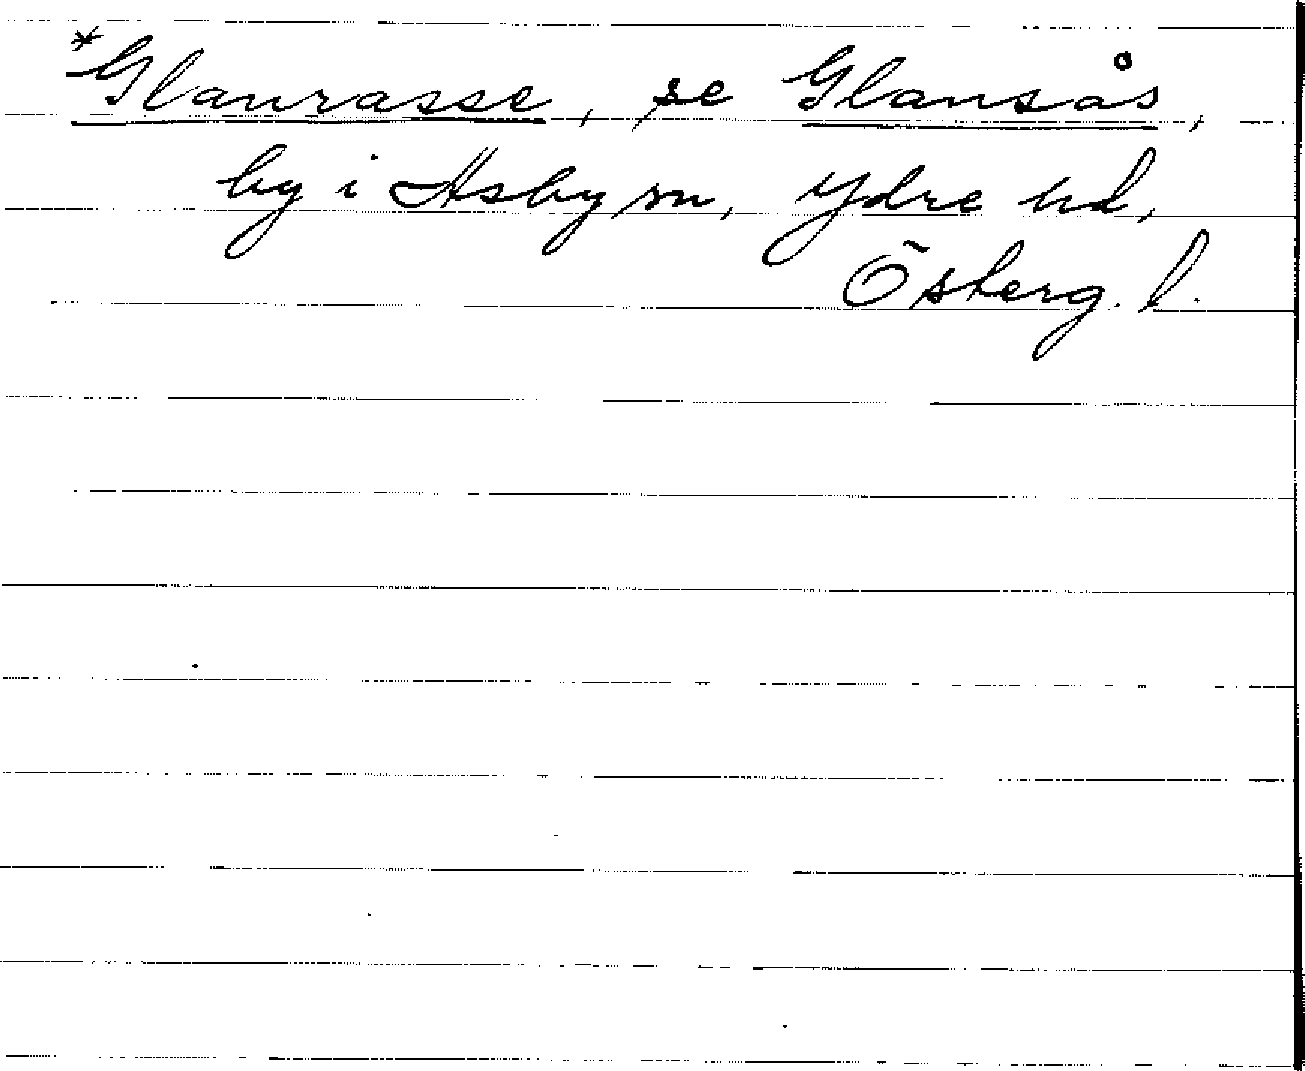 *Glanrasse, se Glansås,
by i Asby sn, Ydre hd,
Österg. l.